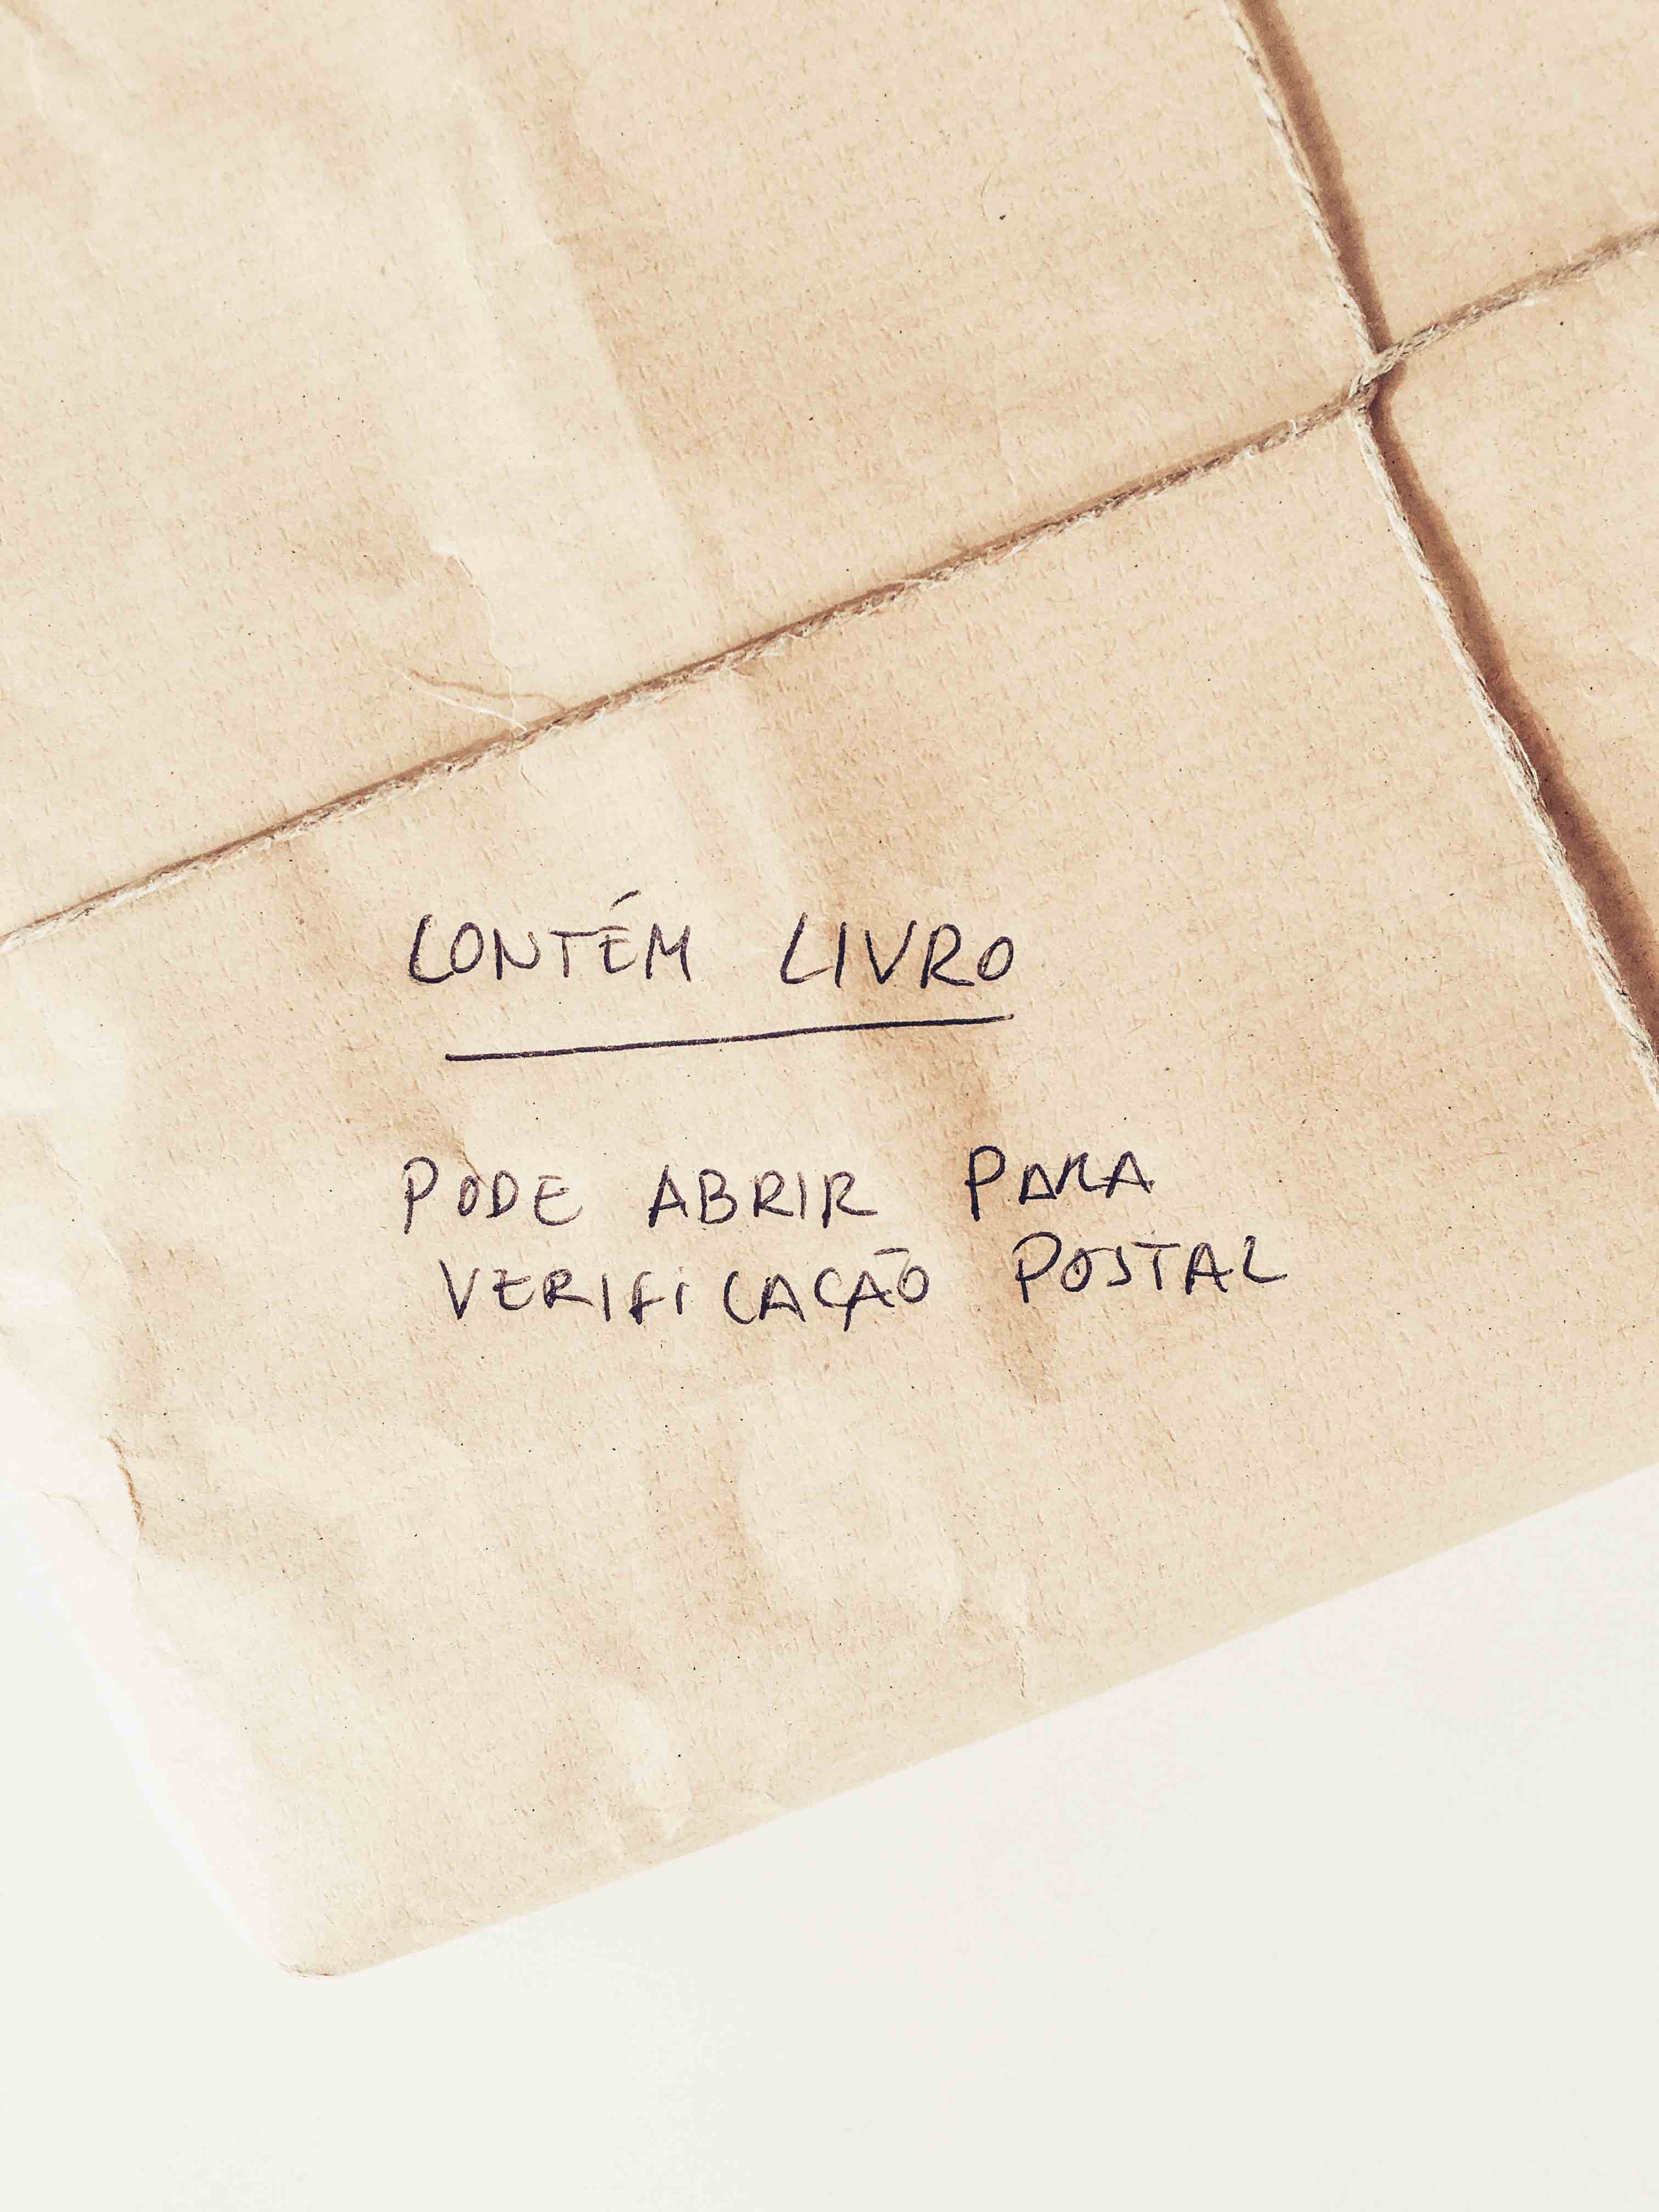 CONTÉM LIVRO
PODE ABRIR PARA
VERIFICAÇÃO POSTAL